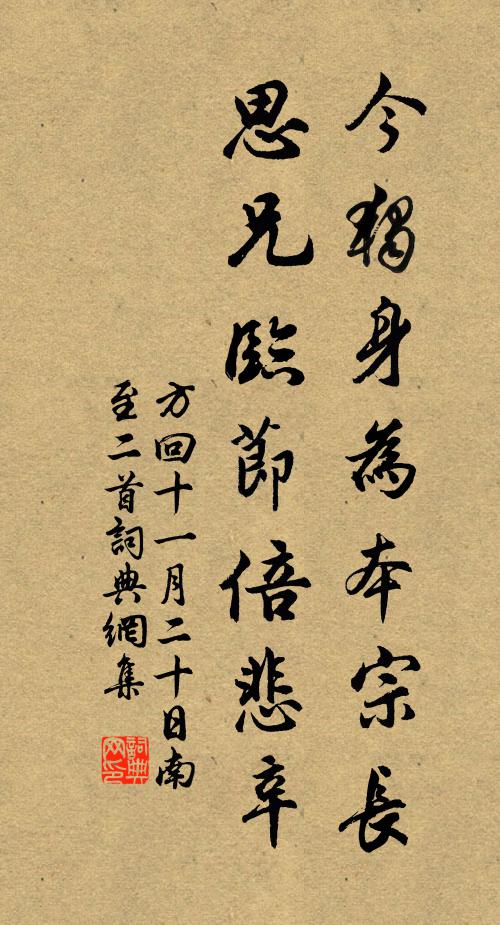 今獨身為本宗長
思兄臨節倍悲辛
方回十一月二十日南
至二首詞典網集
詞典网印